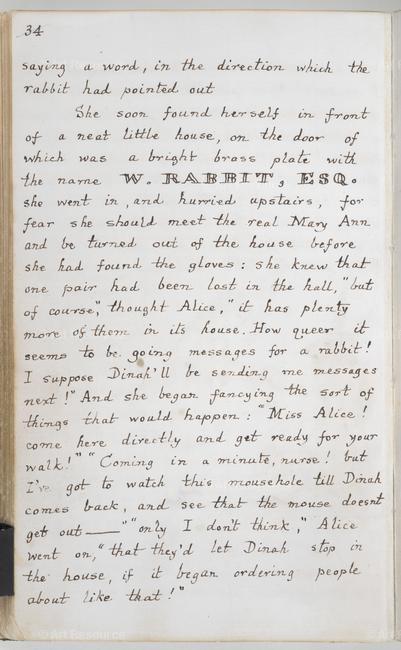 34
saying a word, in the direction which the
rabbit had pointed out
She soon found herself in front
of a neat little house, on the door of
which was a bright brass plate with
the name W. RABBIT, ESQ.
she went in, and hurried upstairs, for
fear she should meet the real Mary Ann
and be turned out of the house before
she had found the gloves: she knew that
one pair had been lost in the hall, "but
of course," thought Alice, "it has plenty
more of them in its house. How queer it
seems to be going messages for a rabbit!
I suppose Dinah'll be sending me messages
next!" And she began fancying the sort of
things that would happen: "Miss Alice!
come here directly and get ready for your
walk!" "Coming in a minute, nurse! but
I've got to watch this mousehole till Dinah
comes back, and see that the mouse doesnt
get out—" "only I don't think," Alice
went on, "that they'd let Dinah stop in
the house, if it began ordering people
about like that!"
Art Resource